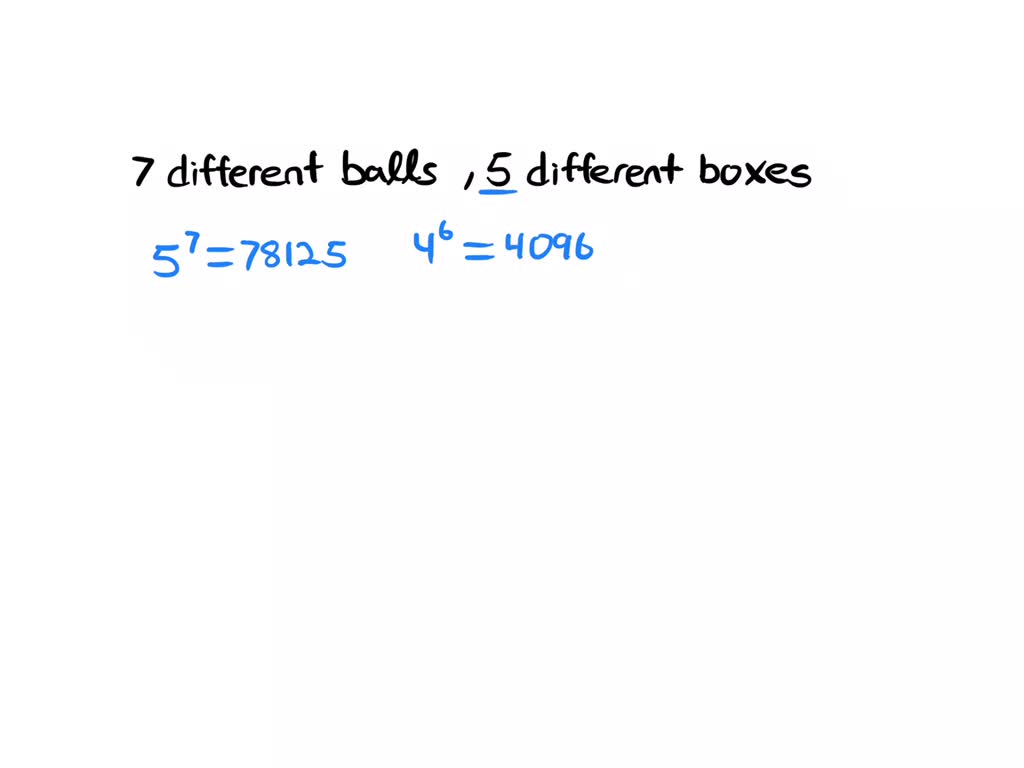 7 different balls , 5 different boxes
5⁷ = 78125 4⁶ = 4096